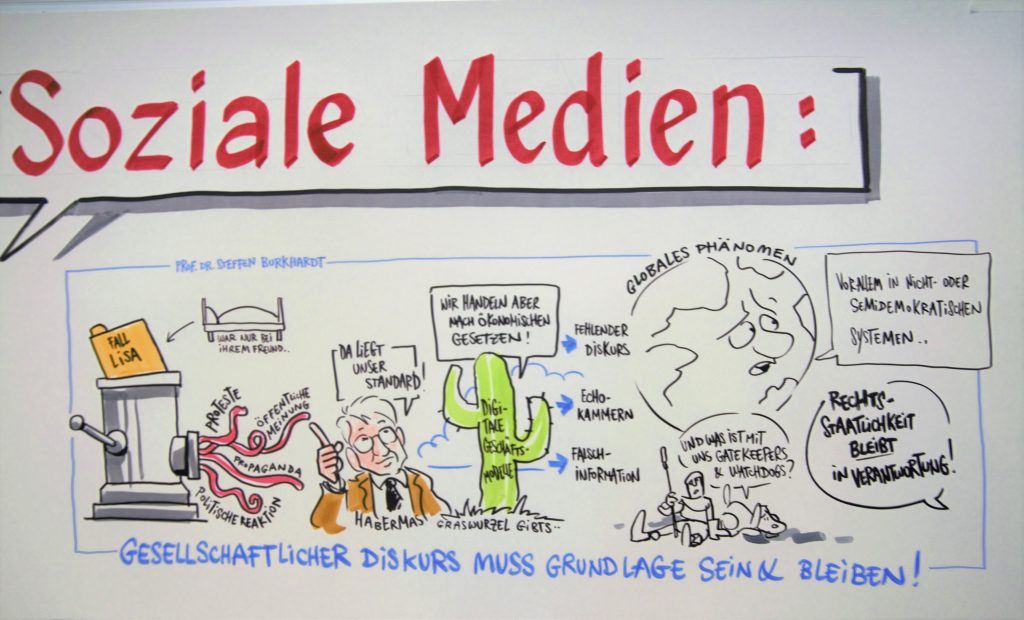 Soziale Medien:
PROF. DR. STEFFEN BURKHARDT
FALL
LISA
WAR NUR BEI
IHREM FREUND..
PROTESTE
ÖFFENTLICHE
MEINUNG
PROPAGANDA
POLITISCHE REAKTION
DA LIEGT
UNSER
STANDARD!
HABERMAS
WIR HANDELN ABER
NACH ÖKONOMISCHEN
GESETZEN!
DIGI-
TALE
GESCHÄFTS-
MODELLE
GRASWURZEL GIBTS..
FEHLENDER
DISKURS
ECHO-
KAMMERN
FALSCH-
INFORMATION
GLOBALES PHÄNOMEN
VORALLEM IN NICHT- ODER
SEMIDEMOKRATISCHEN
SYSTEMEN..
UND WAS IST MIT
UNS GATEKEEPERS
& WATCHDOGS?
RECHTS-
STAATLICHKEIT
BLEIBT
IN VERANTWORTUNG!
GESELLSCHAFTLICHER DISKURS MUSS GRUNDLAGE SEIN & BLEIBEN!